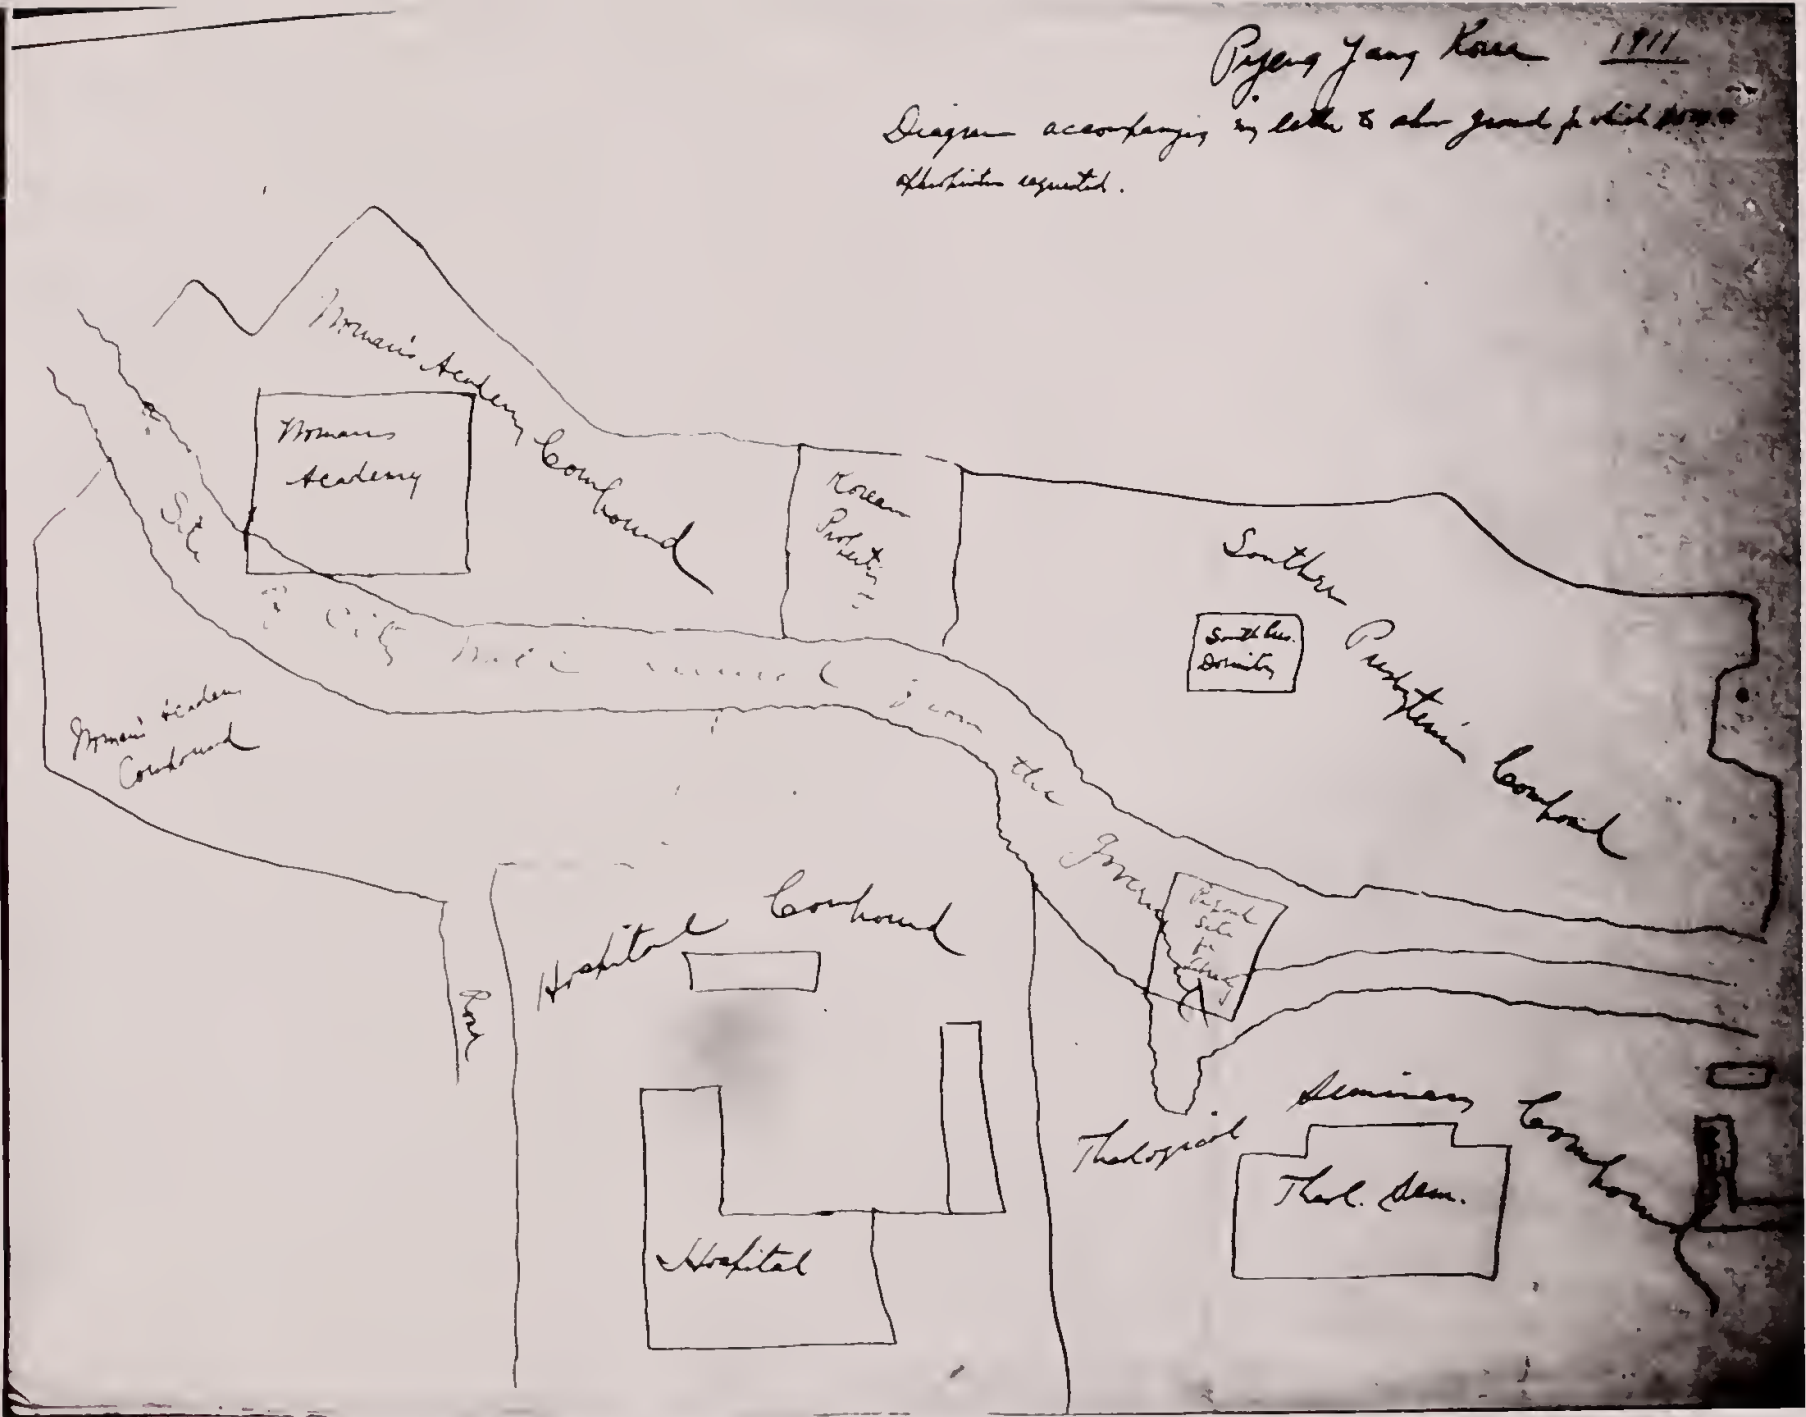 Pyeng Yang Korea 1911
Diagram accompanying my letter to show ground for which
requested.
Woman's Academy Compound
Woman's
Academy
Korean
Property
Southern Presbyterian Compound
Dormitory
Site of City Wall secured from the Govern
Woman's Academy
Compound
Present
Site
for
Hospital Compound
Road
Hospital
Theological Seminary Compound
Theol. Sem.